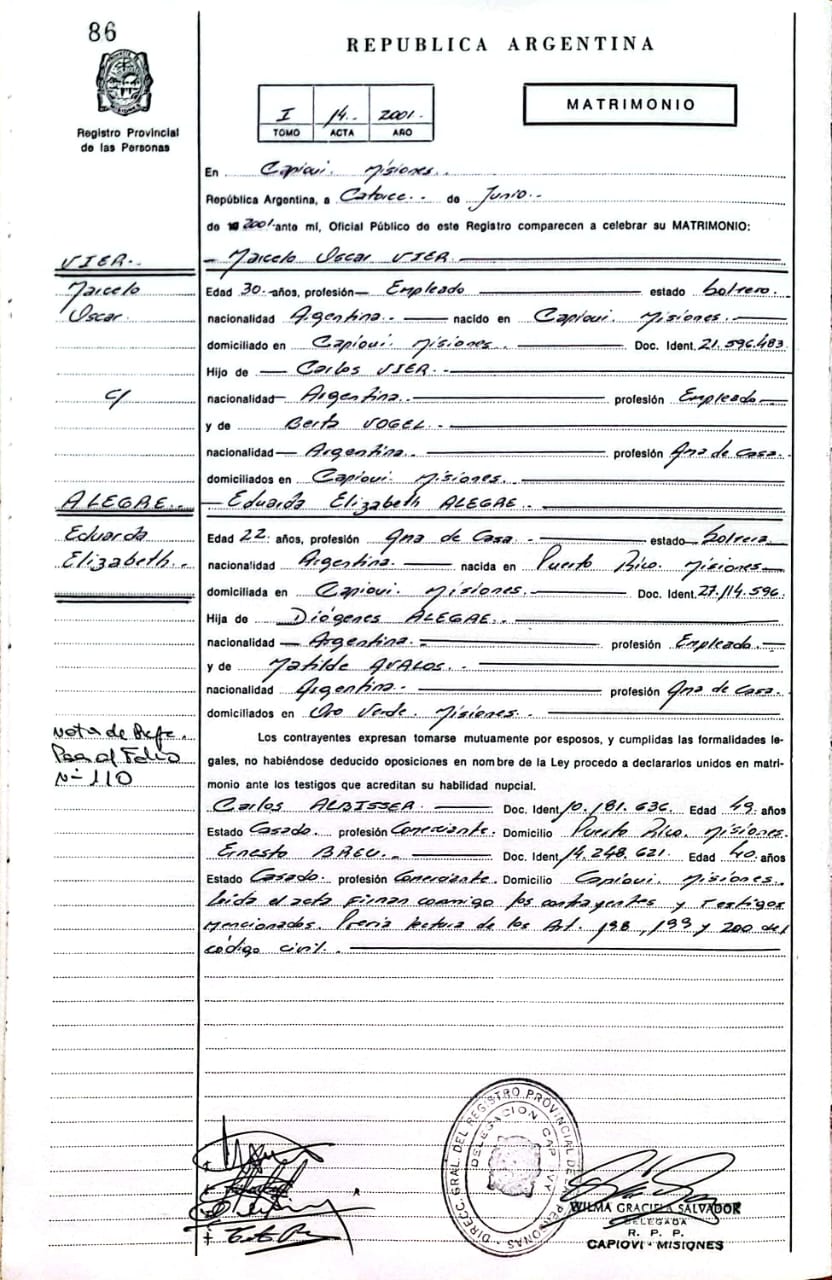 86
REPUBLICA ARGENTINA
Registro Provincial
de las Personas
I 14.. 2001.
TOMO ACTA AÑO
MATRIMONIO
En Capiovi. Misiones..
República Argentina, a Catorce.. de Junio..
de 2001 ante mí, Oficial Público de este Registro comparecen a celebrar su MATRIMONIO:
VIER.. Marcelo Oscar VIER.
Marcelo Edad 30. años, profesión Empleado estado Soltero.
Oscar. nacionalidad Argentina.. nacido en Capiovi. Misiones.
domiciliado en Capiovi. Misiones.. Doc. Ident. 21.596.483
Hijo de Carlos VIER..
c/ nacionalidad Argentina.. profesión Empleado.
y de Berta VOGEL..
nacionalidad Argentina.. profesión Ama de Casa.
domiciliados en Capiovi. Misiones.
ALEGRE.. Eduarda Elizabeth ALEGRE.
Eduarda Edad 22. años, profesión Ama de Casa. estado Soltera.
Elizabeth.. nacionalidad Argentina. nacida en Puerto Rico. Misiones
domiciliada en Capiovi. Misiones. Doc. Ident. 27.114.596.
Hija de Diógenes ALEGRE..
nacionalidad Argentina. profesión Empleado.
y de Matilde AVALOS..
nacionalidad Argentina. profesión Ama de Casa.
domiciliados en Oro Verde. Misiones..
Nota de Refe.
Pasa al Folio
Nº 110
Los contrayentes expresan tomarse mutuamente por esposos, y cumplidas las formalidades le-
gales, no habiéndose deducido oposiciones en nombre de la Ley procedo a declararlos unidos en matri-
monio ante los testigos que acreditan su habilidad nupcial.
Carlos ALBISSER. Doc. Ident. 10.181.636. Edad 49. años
Estado Casado. profesión Comerciante. Domicilio Puerto Rico. Misiones.
Ernesto Doc. Ident. 14.248.621. Edad 40. años
Estado Casado. profesión Comerciante. Domicilio Capiovi. Misiones.
Leída el acta firman conmigo los contrayentes y Testigos
mencionados. Previa lectura de los Art. 198, 199 y 200 del
código civil.
DIRECC. GRAL. DEL REGISTRO PROVINCIAL DE LAS PERSONAS
DELEGACION CAPIOVY
WILMA GRACIELA SALVADOR
DELEGADA
R. P. P.
CAPIOVI - MISIONES